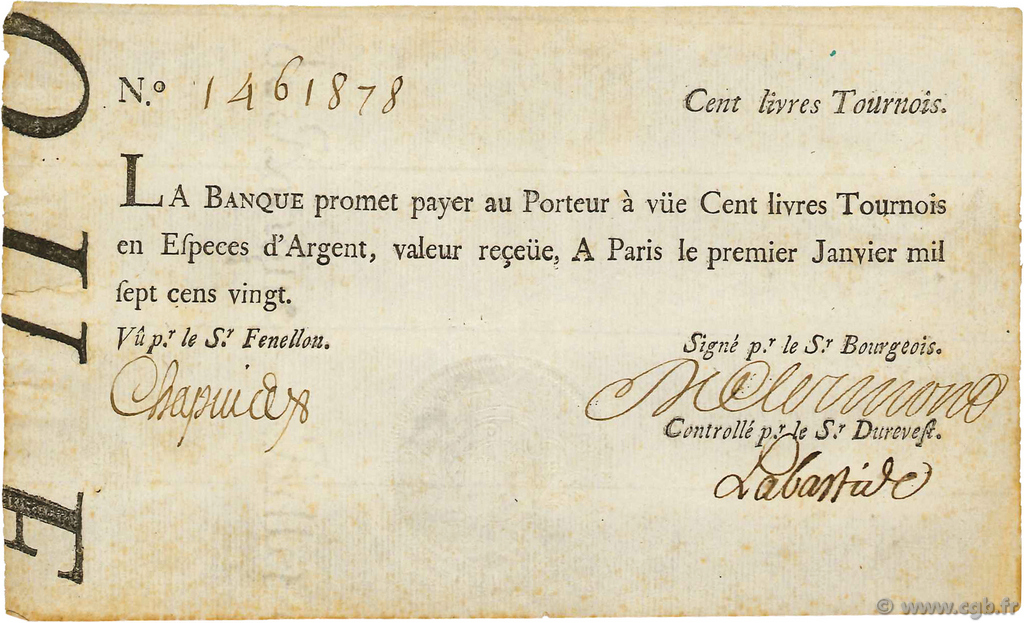 N.º 1461878
Cent livres Tournois.
LA BANQUE promet payer au Porteur à vüe Cent livres Tournois
en Eſpeces d'Argent, valeur reçeüe, A Paris le premier Janvier mil
ſept cens vingt.
Vû p.r le S.r Fenellon.
Signé p.r le S.r Bourgeois.
Controllé p.r le S.r Dureveſt.
Labastide
© www.cgb.fr